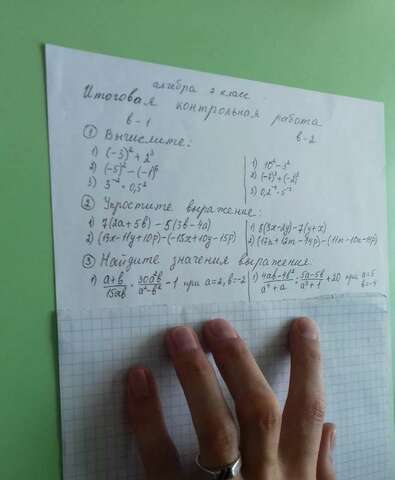 алгебра 7 класс
Итоговая контрольная работа
в-1 в-2
① Вычислите:
1) (-5)² + 2³ 1) 10² - 3²
2) (-5)² - (-1)⁶ 2) (-2)³ + (-2)²
3) 3⁻² · 0,5² 3) 0,2⁻² · 5⁻²
② Упростите выражение:
1) 7(2a+5b) - 5(3b-4a) 1) 8(3x-2y) - 7(y+x)
2) (13x-11y+10p) - (-15x+10y-15p) 2) (17n+12m-14p) - (11m-10n-14p)
③ Найдите значения выражения:
1) a+b/15ab · 30a²b/a²-b² - 1 при a=2, b=-2 1) 4ab-4b²/a³+a · 5a-5b/a²+1 + 20 при a=5 b=-4